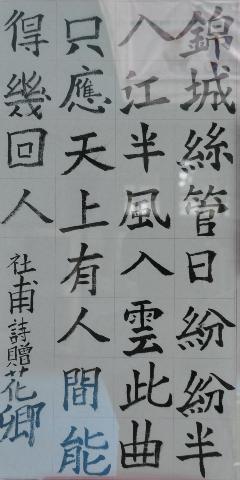 錦城絲管日紛紛半
入江半風入雲此曲
只應天上有人間能
得幾回人
杜甫詩贈花卿